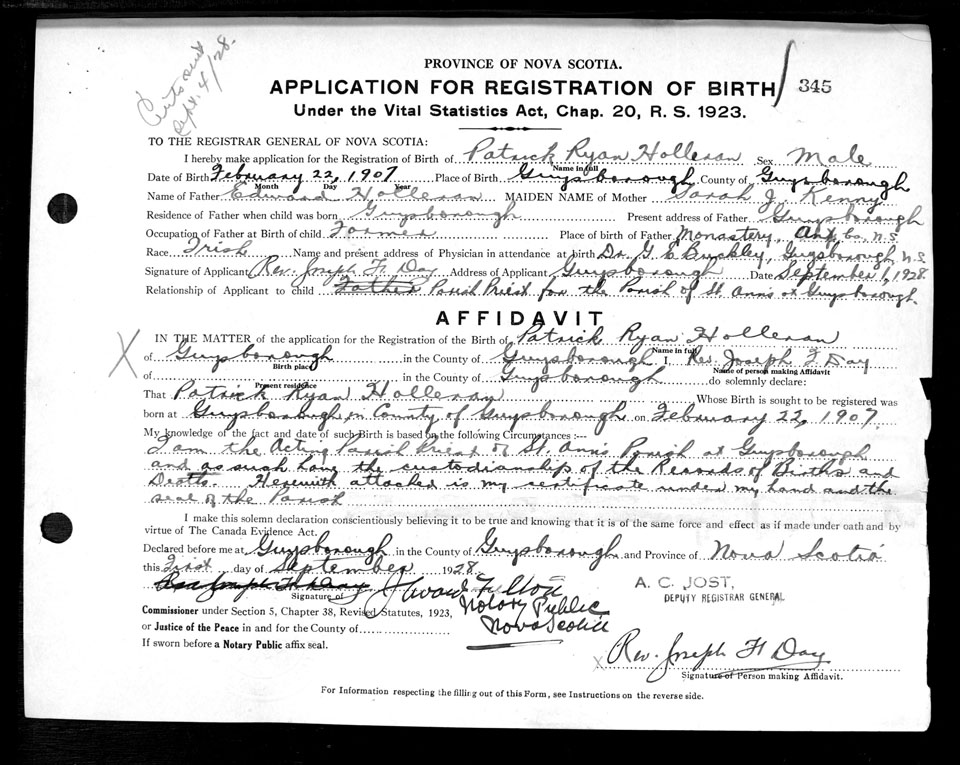 Certs sent
Sept. 4/28.
PROVINCE OF NOVA SCOTIA.
APPLICATION FOR REGISTRATION OF BIRTH / 345
Under the Vital Statistics Act, Chap. 20, R. S. 1923.
TO THE REGISTRAR GENERAL OF NOVA SCOTIA:
I hereby make application for the Registration of Birth of Patrick Ryan Holleran Sex Male
Name in full
Date of Birth February 22, 1907 Place of Birth Guysborough County of Guysborough
Month Day Year
Name of Father Edward Holleran MAIDEN NAME of Mother Sarah J. Kenny
Residence of Father when child was born Guysborough Present address of Father Guysborough
Occupation of Father at Birth of child Farmer Place of birth of Father Monastery, Ant. Co. N.S.
Race Irish Name and present address of Physician in attendance at birth Dr. G. E. Buckley, Guysborough, N.S.
Signature of Applicant Rev. Joseph H. Day Address of Applicant Guysborough Date September 1, 1928
Relationship of Applicant to child Father Parish Priest for the Parish of St Ann's at Guysborough.
AFFIDAVIT
X IN THE MATTER of the application for the Registration of the Birth of Patrick Ryan Holleran
Name in full
of Guysborough in the County of Guysborough I, Rev. Joseph H Day
Birth place Name of person making Affidavit
of in the County of Guysborough do solemnly declare:
Present residence
That Patrick Ryan Holleran Whose Birth is sought to be registered was
born at Guysborough in County of Guysborough on February 22, 1907.
My knowledge of the fact and date of such Birth is based on the following Circumstances :—
I am the Acting Parish Priest of St. Ann's Parish at Guysborough
and as such have the custodianship of the Records of Births and
Deaths. Herewith attached is my certificate under my hand and the
seal of the Parish
I make this solemn declaration conscientiously believing it to be true and knowing that it is of the same force and effect as if made under oath and by
virtue of The Canada Evidence Act.
Declared before me at Guysborough in the County of Guysborough and Province of Nova Scotia
this First day of September 1928.
Rev Joseph H. Day
Signature of
Notary Public
Nova Scotia
A. C. JOST,
DEPUTY REGISTRAR GENERAL
Commissioner under Section 5, Chapter 38, Revised Statutes, 1923,
or Justice of the Peace in and for the County of
If sworn before a Notary Public affix seal.
x Rev. Joseph H Day
Signature of Person making Affidavit.
For Information respecting the filling out of this Form, see Instructions on the reverse side.